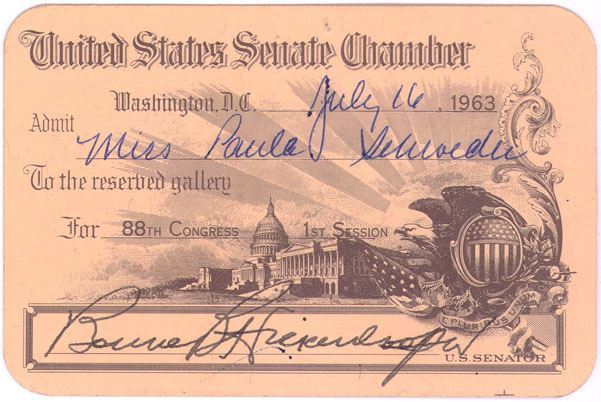 United States Senate Chamber
Washington, D.C. July 16, 1963
Admit Miss Paula Schroeder
To the reserved gallery
For 88TH CONGRESS 1ST SESSION
E PLURIBUS UNUM
Bourke B. Hickenlooper
U.S. SENATOR